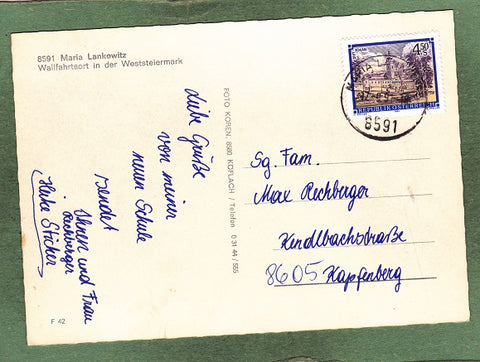 8591 Maria Lankowitz
Wallfahrtsort in der Weststeiermark
Liebe Grüße
von meiner
neuen Schule
sendet
Ihnen und Frau
Rechberger
FOTO KOREN, 8580 KÖFLACH / Telefon 0 31 44 / 555
4.50
REPUBLIK ÖSTERREICH
MARIA
8591
Sg. Fam.
Max Rechberger
Kendlbachstraße
8605 Kapfenberg
F 42